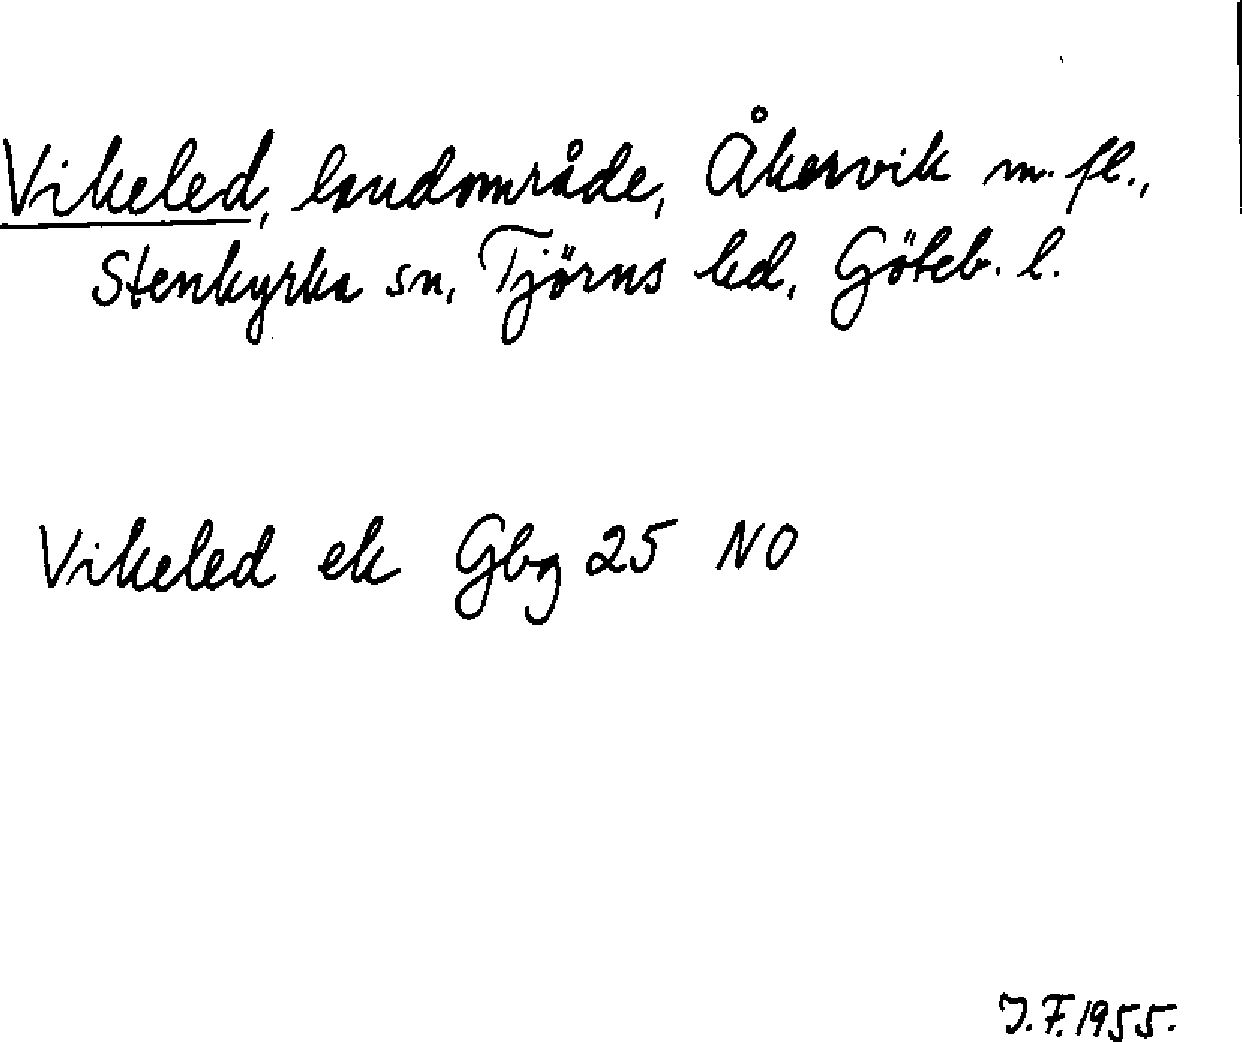 Vikeled, landområde, Åkervik m. fl.,
Stenkyrka sn, Tjörns hd, Göteb. l.
Vikeled ek Gbg 25 NO
J. F. 1955.